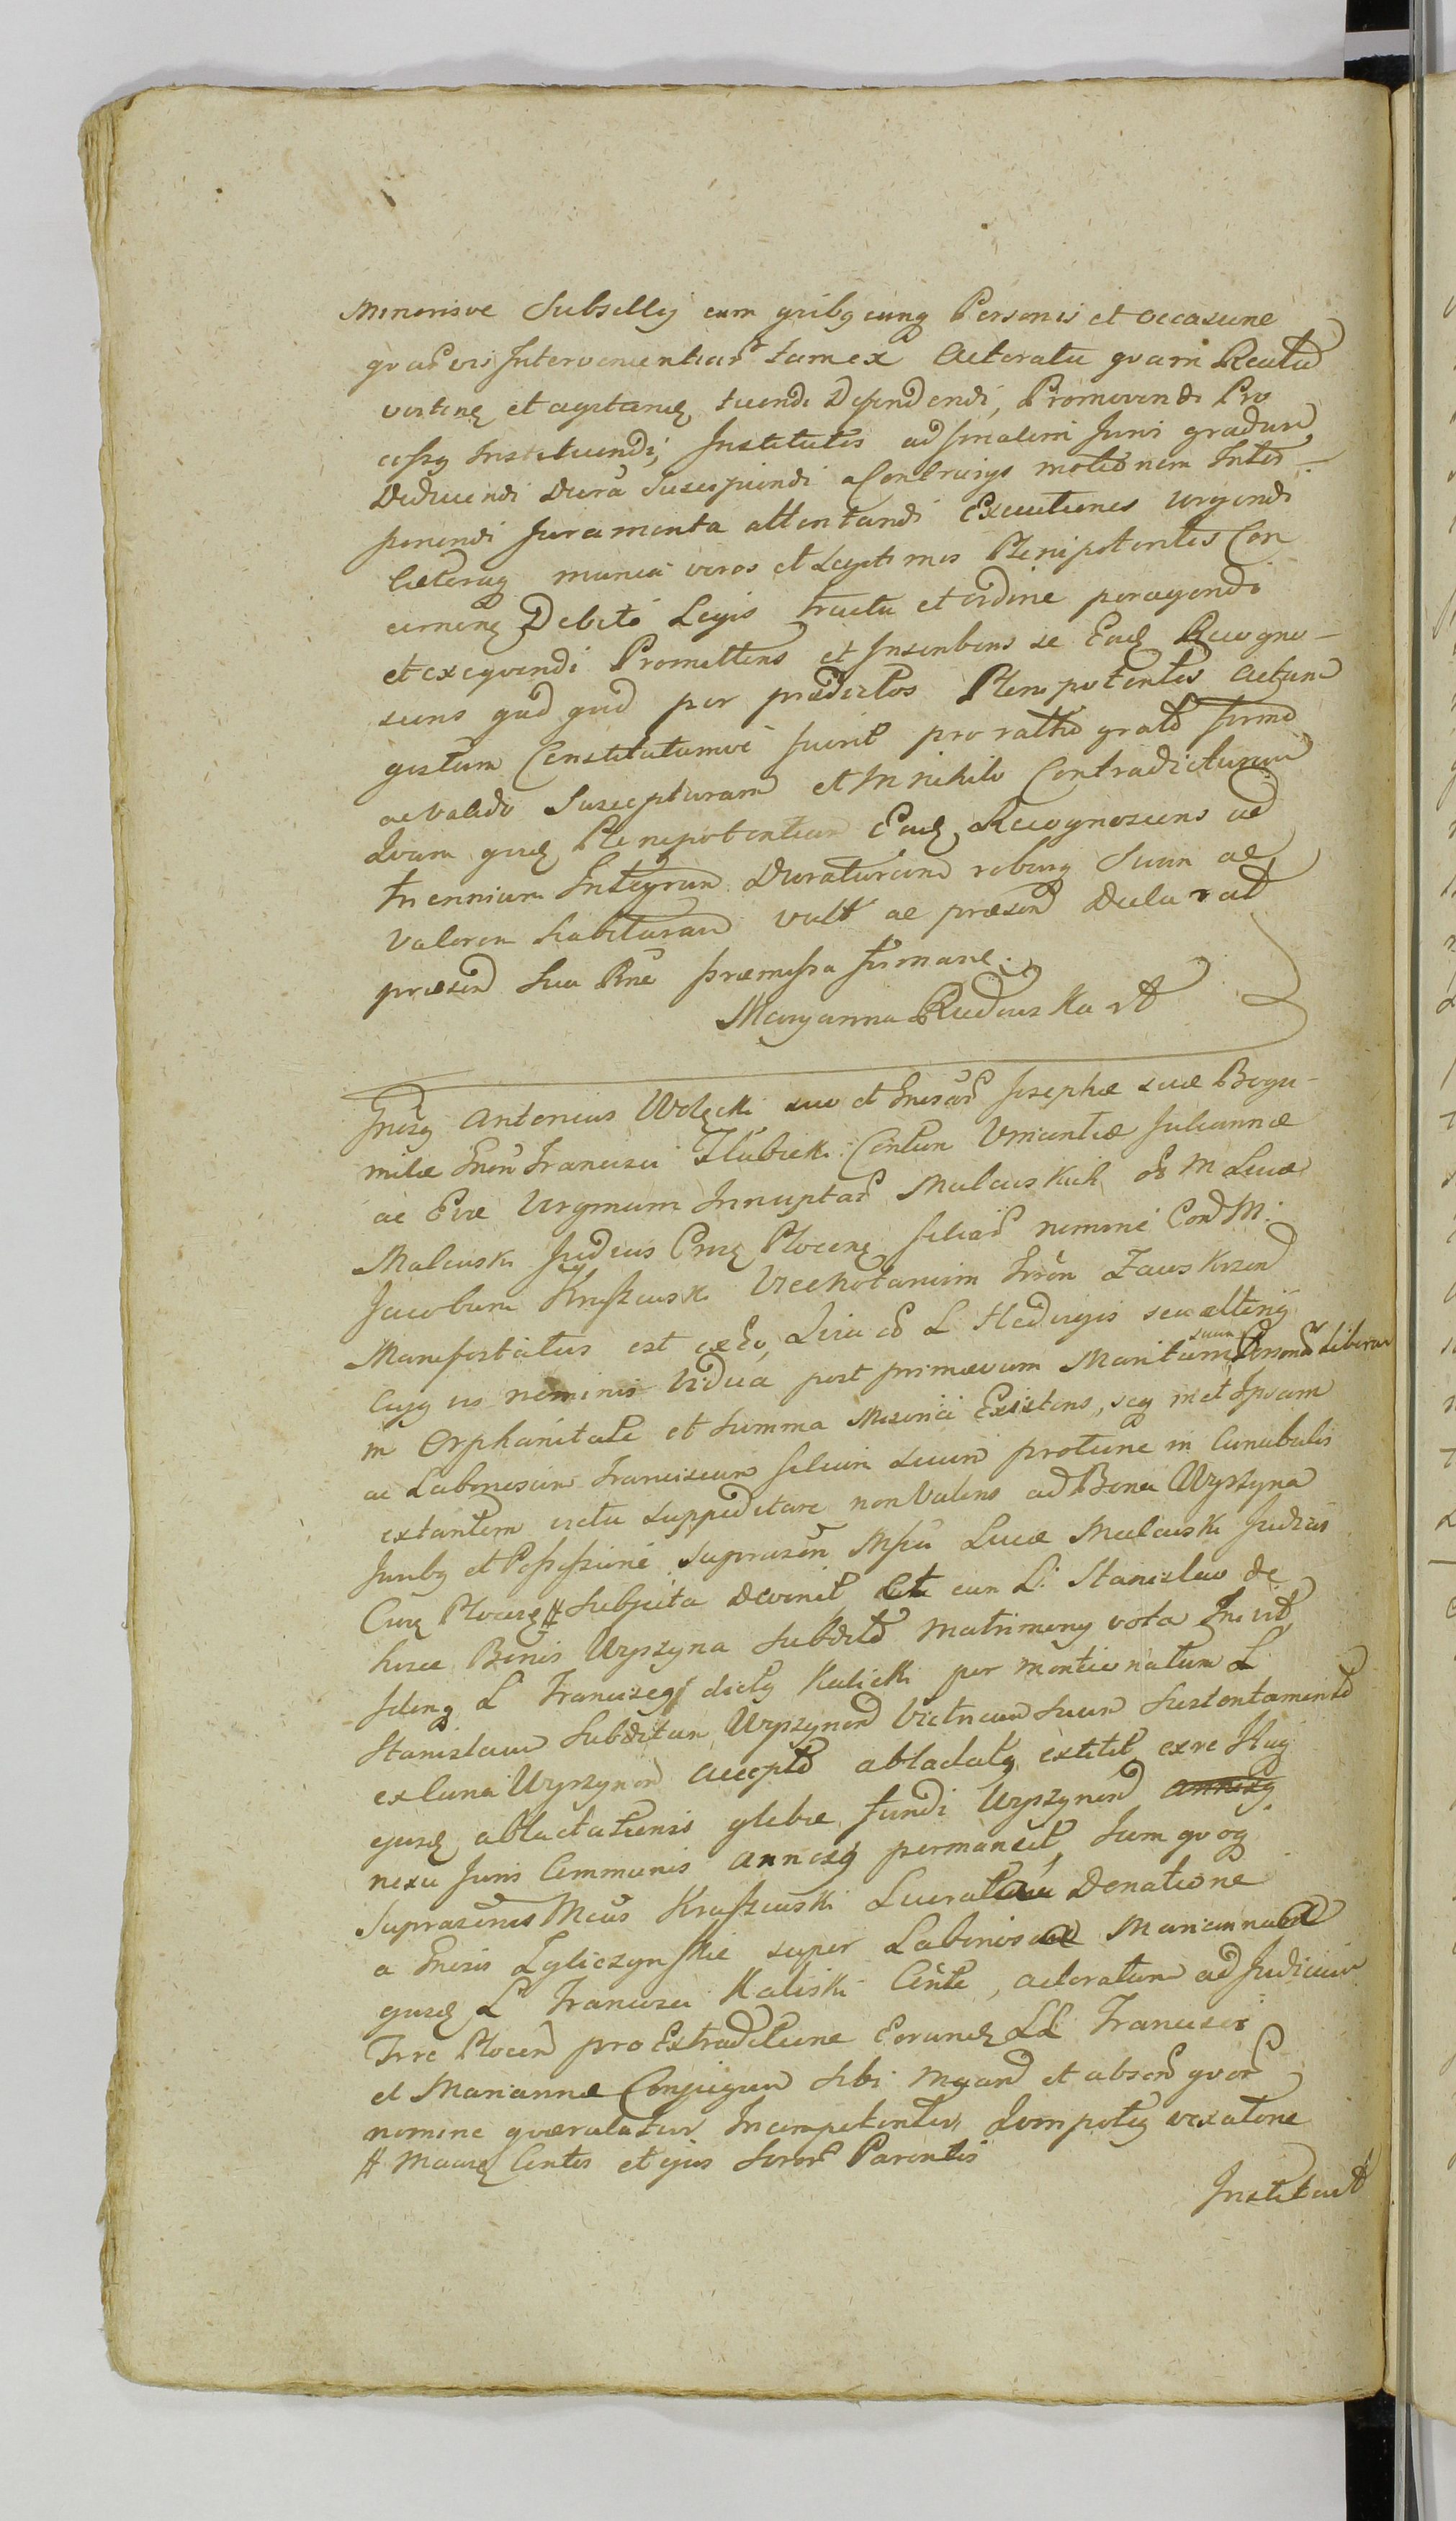 Minorisve Subsellij cum qvibq cunq Personis et occasione
qvavis Intervenientiar tam ex Actoratu qvam Reatu
verten et agitan tuendi Defendendi, Promovendi Pro
cessq Instituendi, Institutis ad finalem Juris gradum
Deducendi Dicta Suscipiendi a Contrariis motionem Inter
ponendi Juramenta attentandi Executiones urgendi
Cæteraq munia veros et Legitimos Plenipotentes Con
cernen Debito Legis tractu et ordine peragendi
et exeqvendi Promittens et Inscribens se Ead Recogno-
scens qvd qvid per prædictos Plenipotentes actum
gestum Constitutumve fuerit pro ratho grato firmo
ac valido Suscepturam et In nihilo Contradicturam
Qvam qvid Plenipotentiam Ead Recognoscens ad
triennium Integrum Duraturam roburq Suum ac
Valorem habituram vult ac præsen Declarat
præsen Sua Rne præmissa firmans.
Maryanna Rudowska rt
Gnosq Antonius Wolęcki suo et Gnosar Josephæ suæ Bogu-
milæ Gnsi Francisci Tłubicki Contum Vincentiæ Juliannæ
ac Evæ Virginum Innuptar Malewskich olim M Lucæ
Malewski Judicis Plocen filiar nomine Con M:
Jacobum Kraszewski Vicenotarium Zawskrzen
Manifestatus est eo, Qvia L Hedvigis seu alterij
Cujq vis nominis Vidua post primævum Maritum suum Liberar
in Orphanitate et Summa Miseria Existens, seq met Ipsam
ac Laboriosum Franciscum filium Suum protunc in Cunabulis
extantem victu suppeditare non Valens ad Bona Wyszyna
Juribq et Possessione Suprascrin Lucæ Malewski Judicis
# Subjecta Devenit, et cum L: Stanislao de
hisce Bonis Wyszyna Subdito Matrimony vota Inivit
L Franciscq dictq Kalicki per mentionatum L
Stanislaum Subditum Wyszynen Vitricum Suum Sustentamento
ex Wyszynen accepto ablactatq extitit ex re Itaq
ejusd ablactationis glebæ fundi Wyszynen
nexu Juris Communis annexq permansit, tum qvoq
Suprascrius Kraszewski Donatione
a Gnosis super Mariannæ
qvusd L Francisci Kaliski Cnte, actoratum ad Judicium
Trre Plocen pro Extraditione Eorund LL Francisci
et Mariannæ Conjugum Sibi et absen qvor
nomine qværulatur Incompetenter vexatone
# et ejus Soror Parentis
Instituit